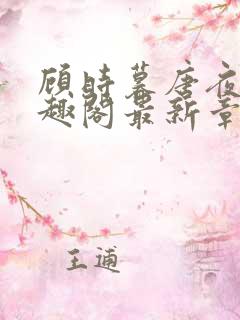 顾时暮唐夜
趣阁最新章
王逋